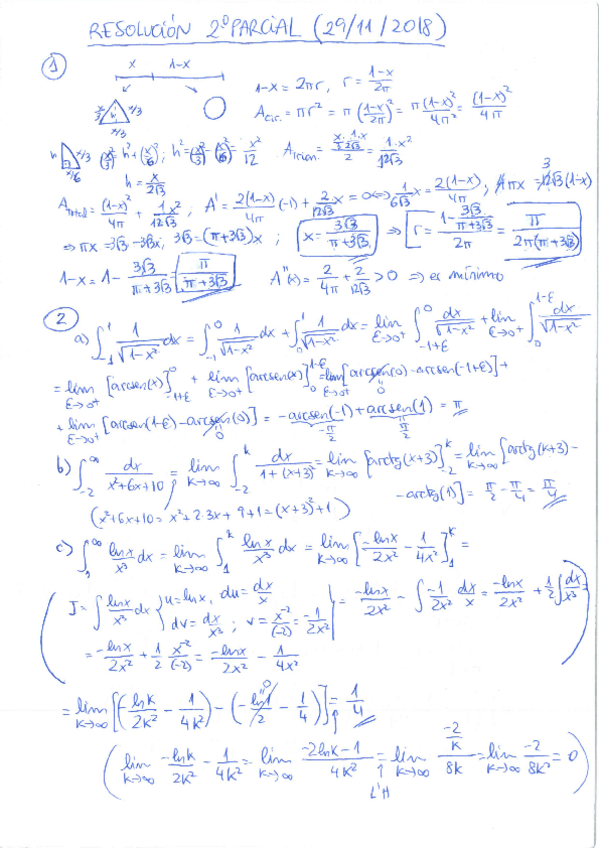 RESOLUCIÓN 2º PARCIAL (29/11/2018)
① x 1-x
1-x = 2πr, r = (1-x)/2π
x/3 h x/3
x/3
A_cir. = πr² = π((1-x)/2π)² = π(1-x)²/4π² = (1-x)²/4π
h x/3 x/6 (x/3)² = h² + (x/6)²; h² = (x/3)² - (x/6)² = x²/12
h = x/2√3
A_trian. = (x/3 · 1·x/2√3)/2 = 1·x²/12√3
A_total = (1-x)²/4π + 1x²/12√3; A' = 2(1-x)/4π (-1) + 2/12√3 x = 0 ⇔ 1/6√3 x = 2(1-x)/4π; 4πx = 12√3(1-x) 3
⇒ πx = 3√3 - 3√3x; 3√3 = (π+3√3)x; x = 3√3/(π+3√3) ⇒ r = (1 - 3√3/(π+3√3))/2π = π/2π(π+3√3)
1-x = 1 - 3√3/(π+3√3) = π/(π+3√3) A''(x) = 2/4π + 2/12√3 > 0 ⇒ es mínimo
②
a) ∫_{-1}^{1} 1/√(1-x²) dx = ∫_{-1}^{0} 1/√(1-x²) dx + ∫_0^1 1/√(1-x²) dx = lim_{ε→0⁺} ∫_{-1+ε}^{0} dx/√(1-x²) + lim_{ε→0⁺} ∫_0^{1-ε} dx/√(1-x²)
= lim_{ε→0⁺} [arcsen(x)]_{-1+ε}^{0} + lim_{ε→0⁺} [arcsen(x)]_0^{1-ε} = lim_{ε→0⁺} [arcsen(0) - arcsen(-1+ε)] +
0
+ lim_{ε→0⁺} [arcsen(1-ε) - arcsen(0)] = -arcsen(-1) + arcsen(1) = π
0 -π/2 π/2
b) ∫_{-2}^{∞} dx/(x²+6x+10) = lim_{k→∞} ∫_{-2}^{k} dx/(1+(x+3)²) = lim_{k→∞} [arctg(x+3)]_{-2}^{k} = lim_{k→∞} [arctg(k+3) -
- arctg(1)] = π/2 - π/4 = π/4
(x²+6x+10 = x²+2·3x+9+1 = (x+3)²+1)
c) ∫_1^∞ lnx/x³ dx = lim_{k→∞} ∫_1^k lnx/x³ dx = lim_{k→∞} [-lnx/2x² - 1/4x²]_1^k =
(J = ∫ lnx/x³ dx { u = lnx, du = dx/x
dv = dx/x³; v = x⁻²/(-2) = -1/2x² | = -lnx/2x² - ∫ -1/2x² dx/x = -lnx/2x² + 1/2 ∫ dx/x³ =
= -lnx/2x² + 1/2 x⁻²/(-2) = -lnx/2x² - 1/4x²)
= lim_{k→∞} [(-lnk/2k² - 1/4k²) - (-ln1/2 - 1/4)] = 1/4
0
(lim_{k→∞} -lnk/2k² - 1/4k² = lim_{k→∞} (-2lnk-1)/4k² = lim_{k→∞} (-2/k)/8k = lim_{k→∞} -2/8k² = 0)
L'H